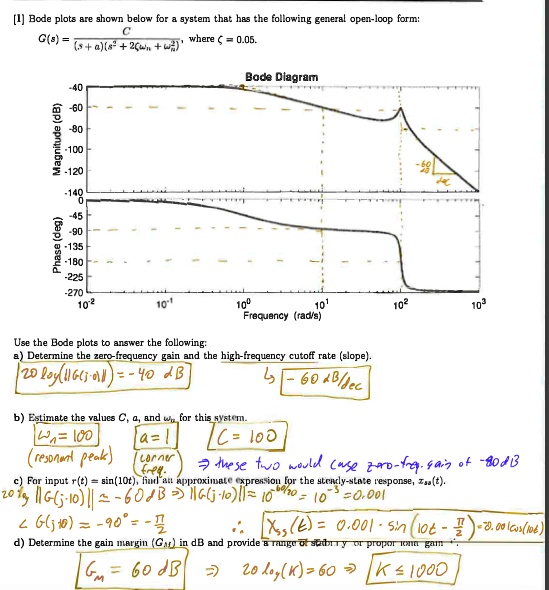 [1] Bode plots are shown below for a system that has the following general open-loop form:
G(s) = C / (s + a)(s² + 2ζωₙ + ωₙ²), where ζ = 0.05.
Bode Diagram
Magnitude (dB)
-40
-60
-80
-100
-120
-140
-60 dB
dec
Phase (deg)
0
-45
-90
-135
-180
-225
-270
10⁻² 10⁻¹ 10⁰ 10¹ 10² 10³
Frequency (rad/s)
Use the Bode plots to answer the following:
a) Determine the zero-frequency gain and the high-frequency cutoff rate (slope).
20 log(||G(j·0)||) = -40 dB ↳ -60 dB/dec
b) Estimate the values C, a, and ωₙ for this system.
ωₙ = 100 a = 1 C = 100
(resonant peak) (corner freq.) ⇒ these two would cause zero-freq. gain of -80 dB
c) For input r(t) = sin(10t), find an approximate expression for the steady-state response, xₛₛ(t).
20 log ||G(j·10)|| ≈ -60 dB ⇒ ||G(j·10)|| = 10^-60/20 = 10⁻³ = 0.001
∠ G(j10) ≈ -90° = -π/2 ∴ Xₛₛ(t) = 0.001 · sin(10t - π/2) = -0.001cos(10t)
d) Determine the gain margin (G_M) in dB and provide a range of for proportional gain
G_M = 60 dB ⇒ 20 log(K) = 60 ⇒ K ≤ 1000